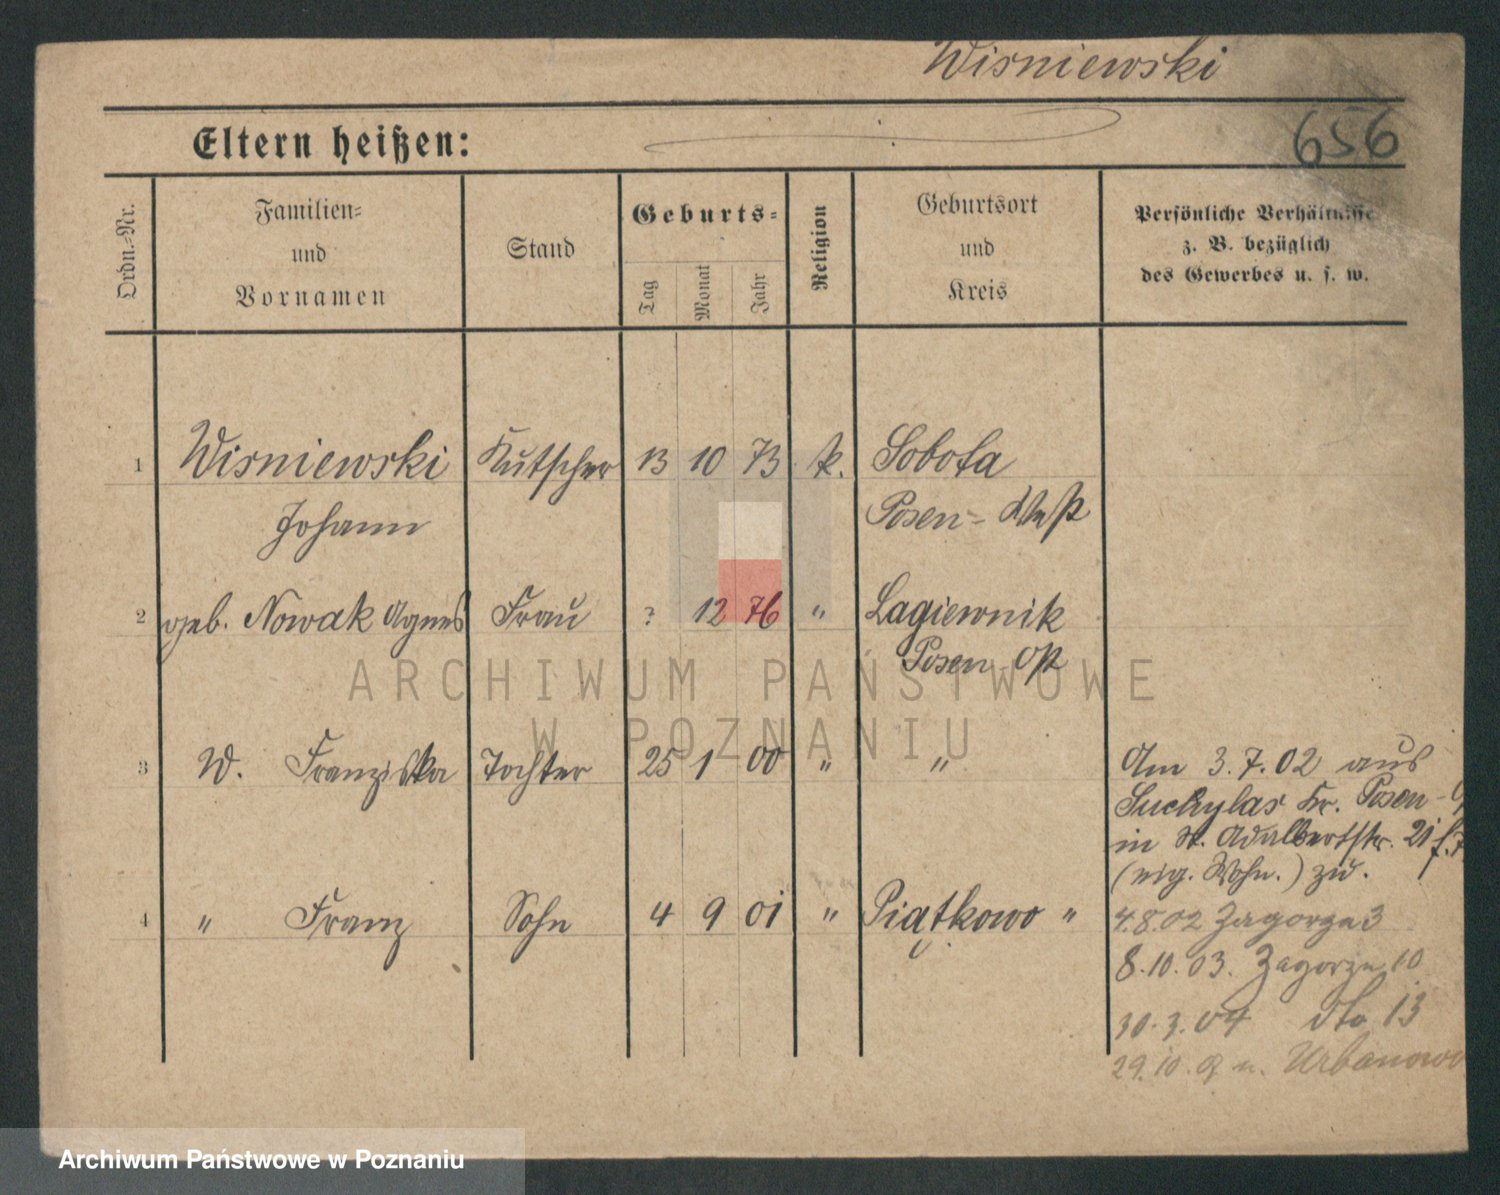 Wisniewski
656
Eltern heißen:
Ordn.-Nr. Familien- und Vornamen Stand Geburts- Tag Monat Jahr Religion Geburtsort und Kreis Persönliche Verhältnisse z. B. bezüglich des Gewerbes u. s. w.
1 Wisniewski Kutscher 13 10 73 k. Sobota
Johann Posen-West
2 geb. Nowak Agnes Frau ? 12 76 " Lagiewnik
Posen Ost
3 W. Franziska Tochter 25 1 00 " "
Am 3.7.02 aus
Suchylas Kr. Posen-O
in St. Adalbertstr. 21
(eig. Wohn.) zu.
4 " Franz Sohn 4 9 01 " Piątkowo "
4.8.02 Zagorze 3
8.10.03. Zagorze 10
30.3.04 dto 13
29.10. n. Urbanowo
ARCHIWUM PAŃSTWOWE
W POZNANIU
Archiwum Państwowe w Poznaniu